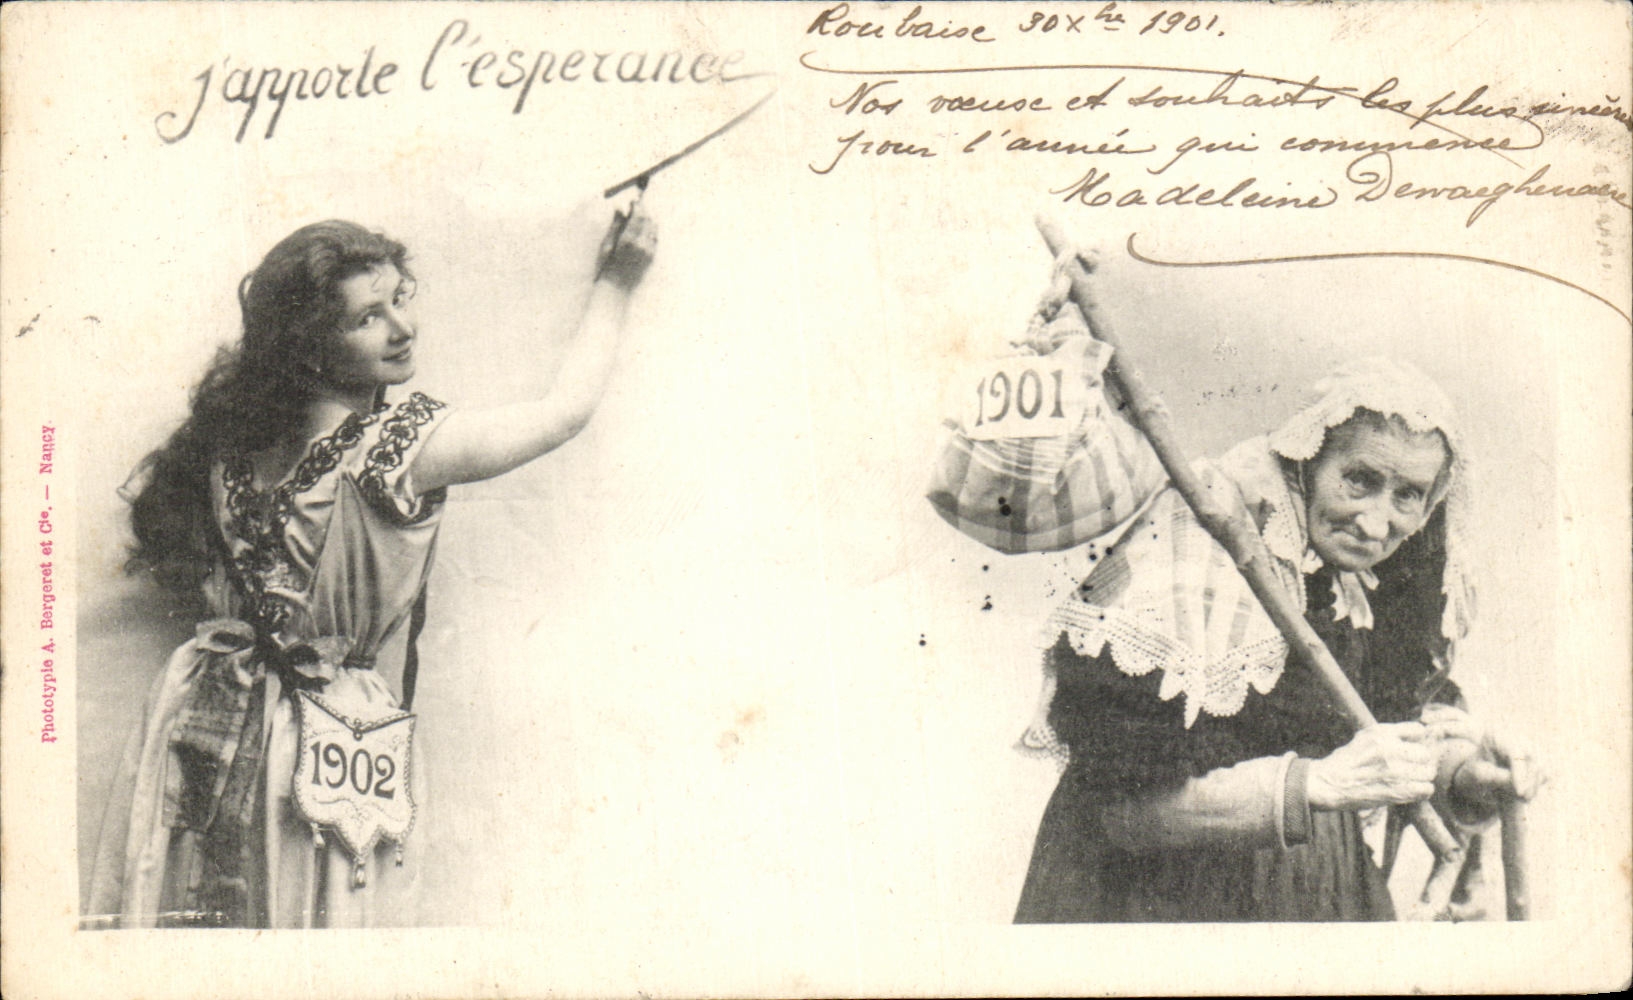 j'apporte l'esperance
Roubaise 30 Xbre 1901.
Nos vœuse et souhaits les plus sincères
pour l'année qui commence
Madeleine Dewaeghenaere
1901
1902
Phototypie A. Bergeret et Cie. — Nancy.